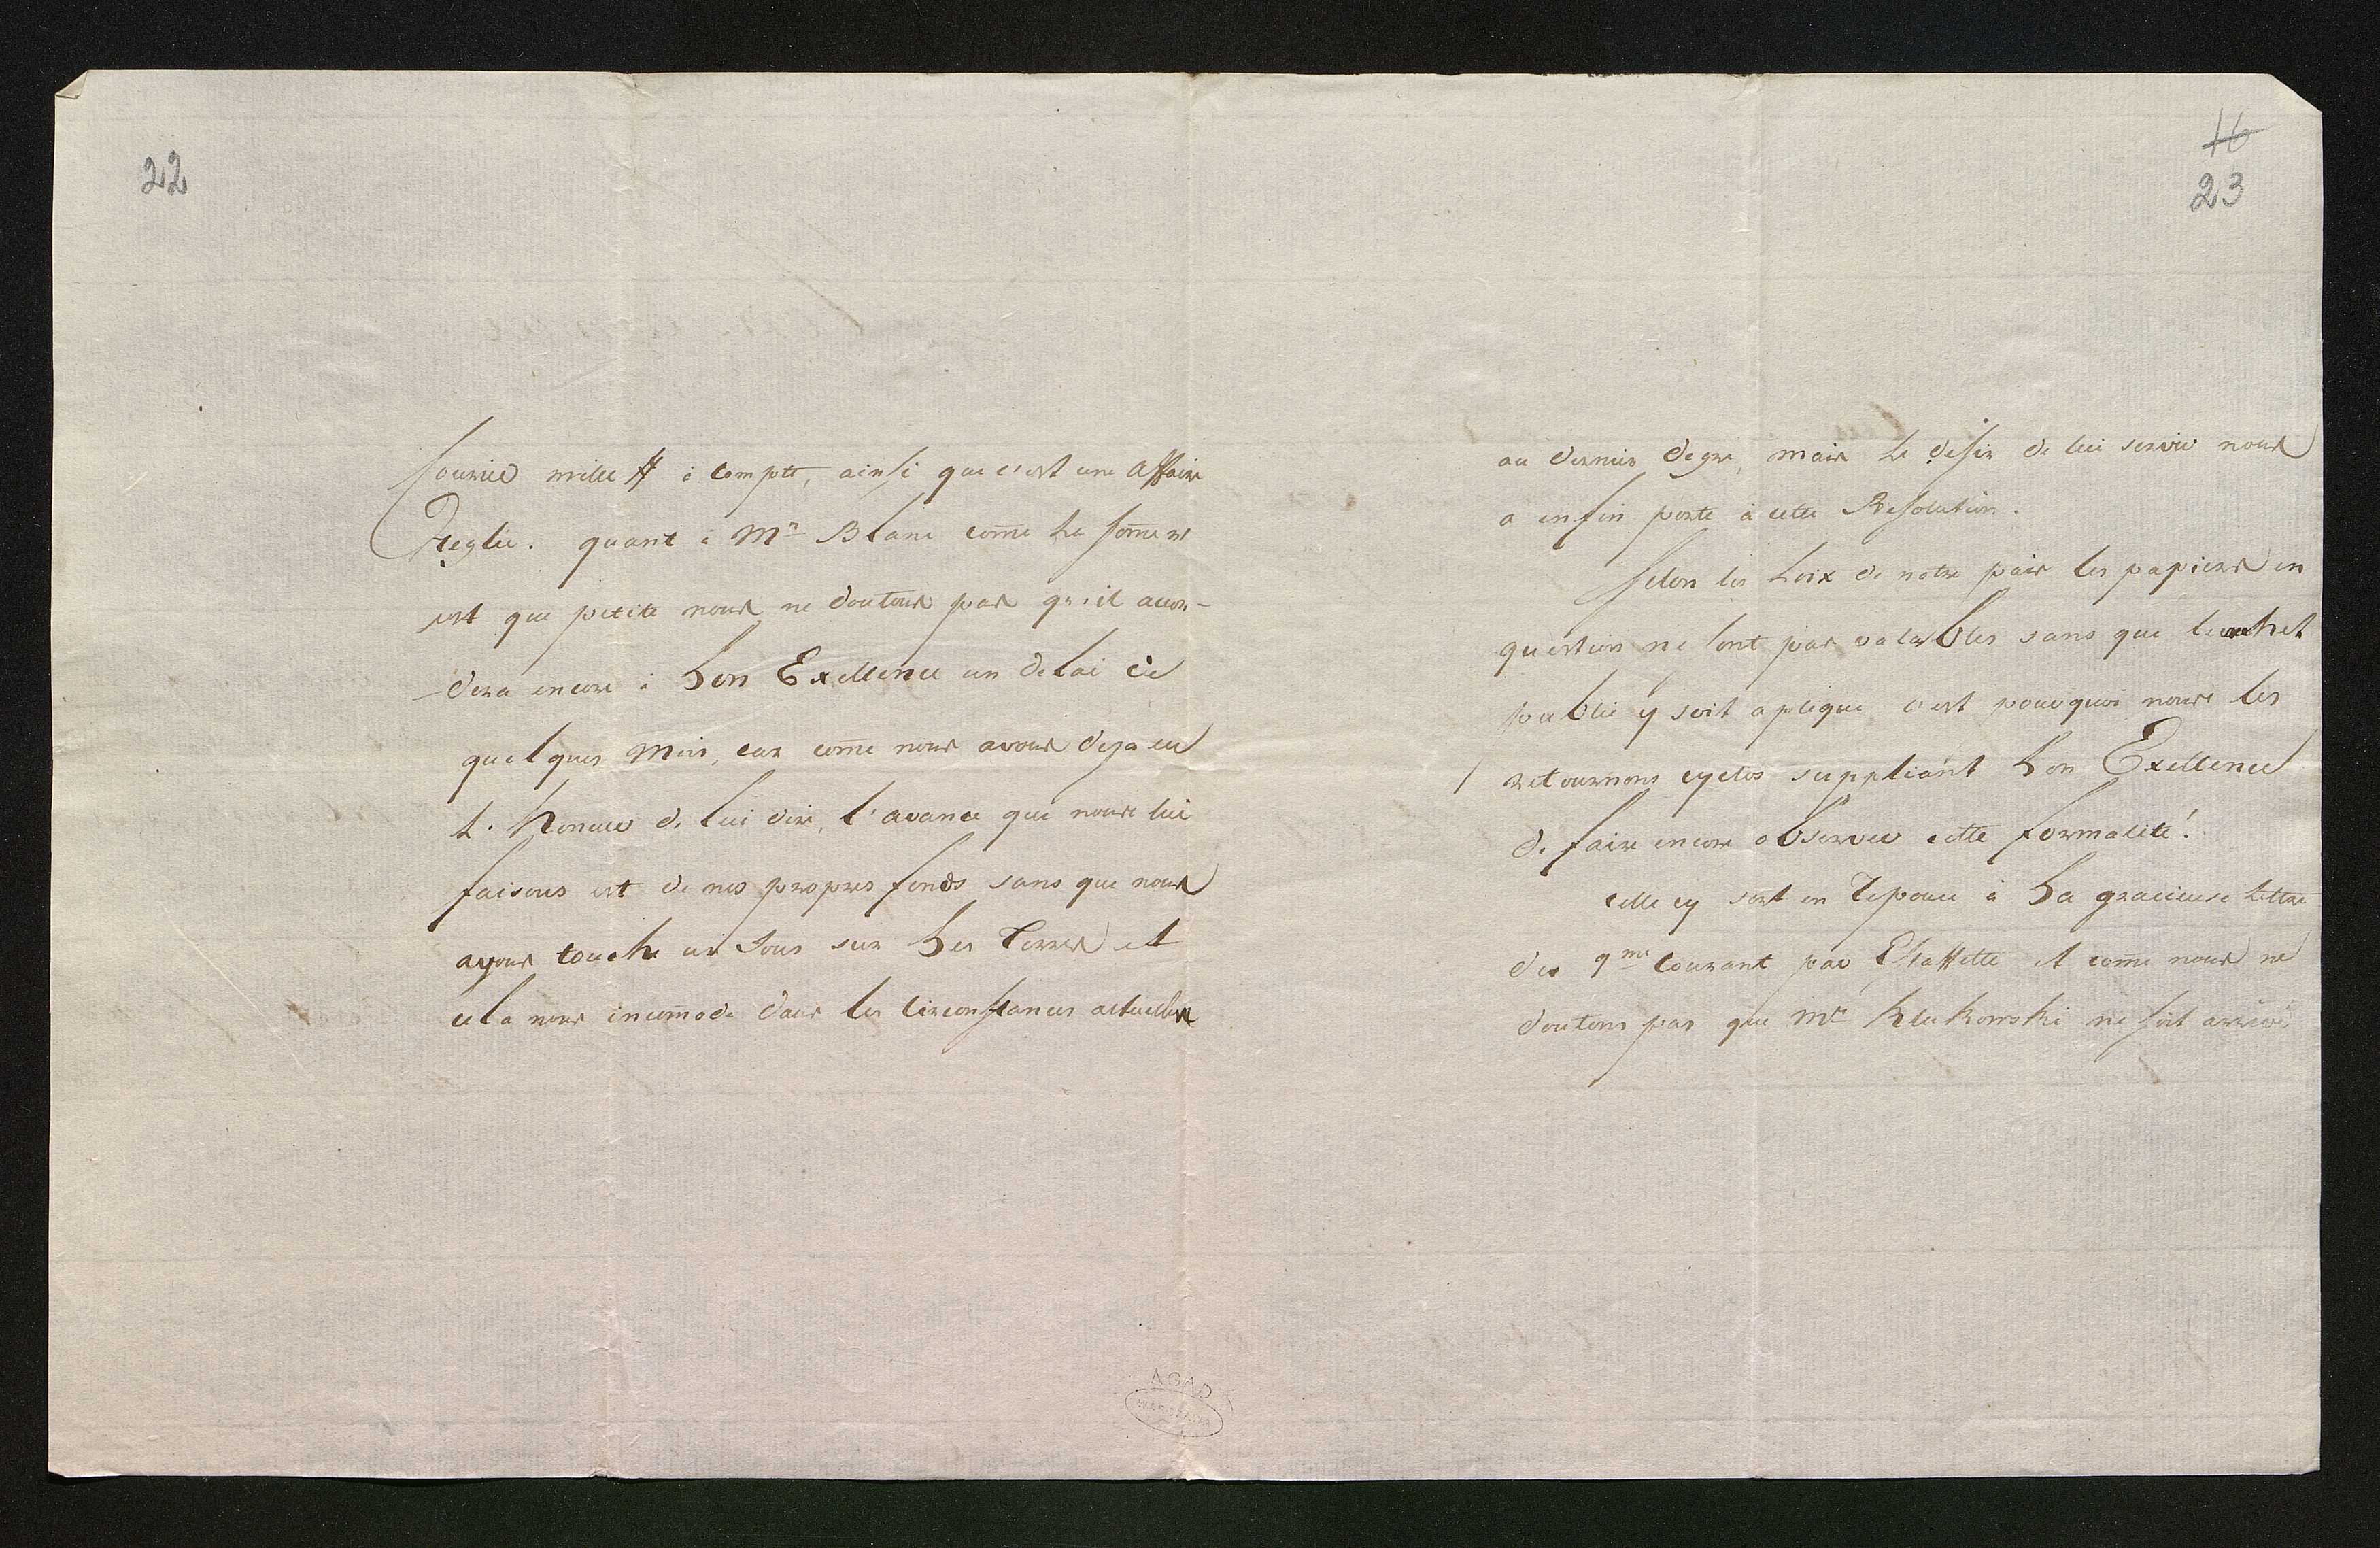 22
mille # à Compte, ainsi que c'est une Affaire
Reglée. quant à Mr Blanc come La some n'
est que petite nous ne doutons pas qu'il accor-
-dera encore à Son Exellence un delai de
quelques Mois, car come nous avons deja eu
L'honeur de lui dire, l'avance que nous lui
faisons est de nos propres fonds sans que nous
ayons touché un Sous sur Ses Terres et
cela nous incomode dans les Circonstances actuelles
16
23
au dernier degre, mais Le desir de lui servir nous
a enfin porté à cette Resolution.
Selon les Loix de notre pais les papiers en
question ne sont pas valables sans que le cachet
public y soit apliqué, c'est pourquoi nous les
/ retournons cyclos suppliant Son Exellence
de faire encore observer cette formalité!
celle cy sert en Reponce à Sa gracieuse Lettre
des 9me Courant par Estaffette et come nous ne
doutons pas que Mr Klukowski ne soit arrivé
AGAD
WARSZAWA